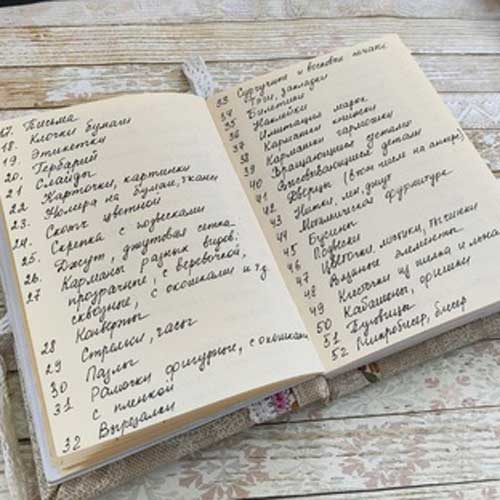 17. Письма
18. Клочки бумаги
19. Этикетки
20. Гербарий
21 Слайды
22. Карточки, картинки
23. Номера на бумаге, ткани
24. Скотч цветной
25. Скрепка с подвесками
26. Джут, джутовая сетка
27 Карманы разных видов:
прозрачные, с веревочкой,
сквозные, с окошками и т.д.
Конверты
28 Стрелки, часы
29 Пазлы
30 Рамочки фигурные, с окошками,
31 с пленкой
32 Вырезалки
33 Сургучные и восковые печати
34 Тэги, закладки
35 Билетики
36 Наклейки
37 Имитация марок
38 Кармашки книжки
39 Кармашки гармошки
40 Вращающиеся детали
41 Высовывающиеся детали
42 Дверцы
43 Нитки, лен, джут
44 Металлическая фурнитура
45 Бусины
46 Подвески
47 Цветочки, листики, тычинки
48 Вязаные элементы
49 Клочки из шелка и льна
50 Кабошоны, фишки
51 Пуговицы
52 Микробисер, бисер